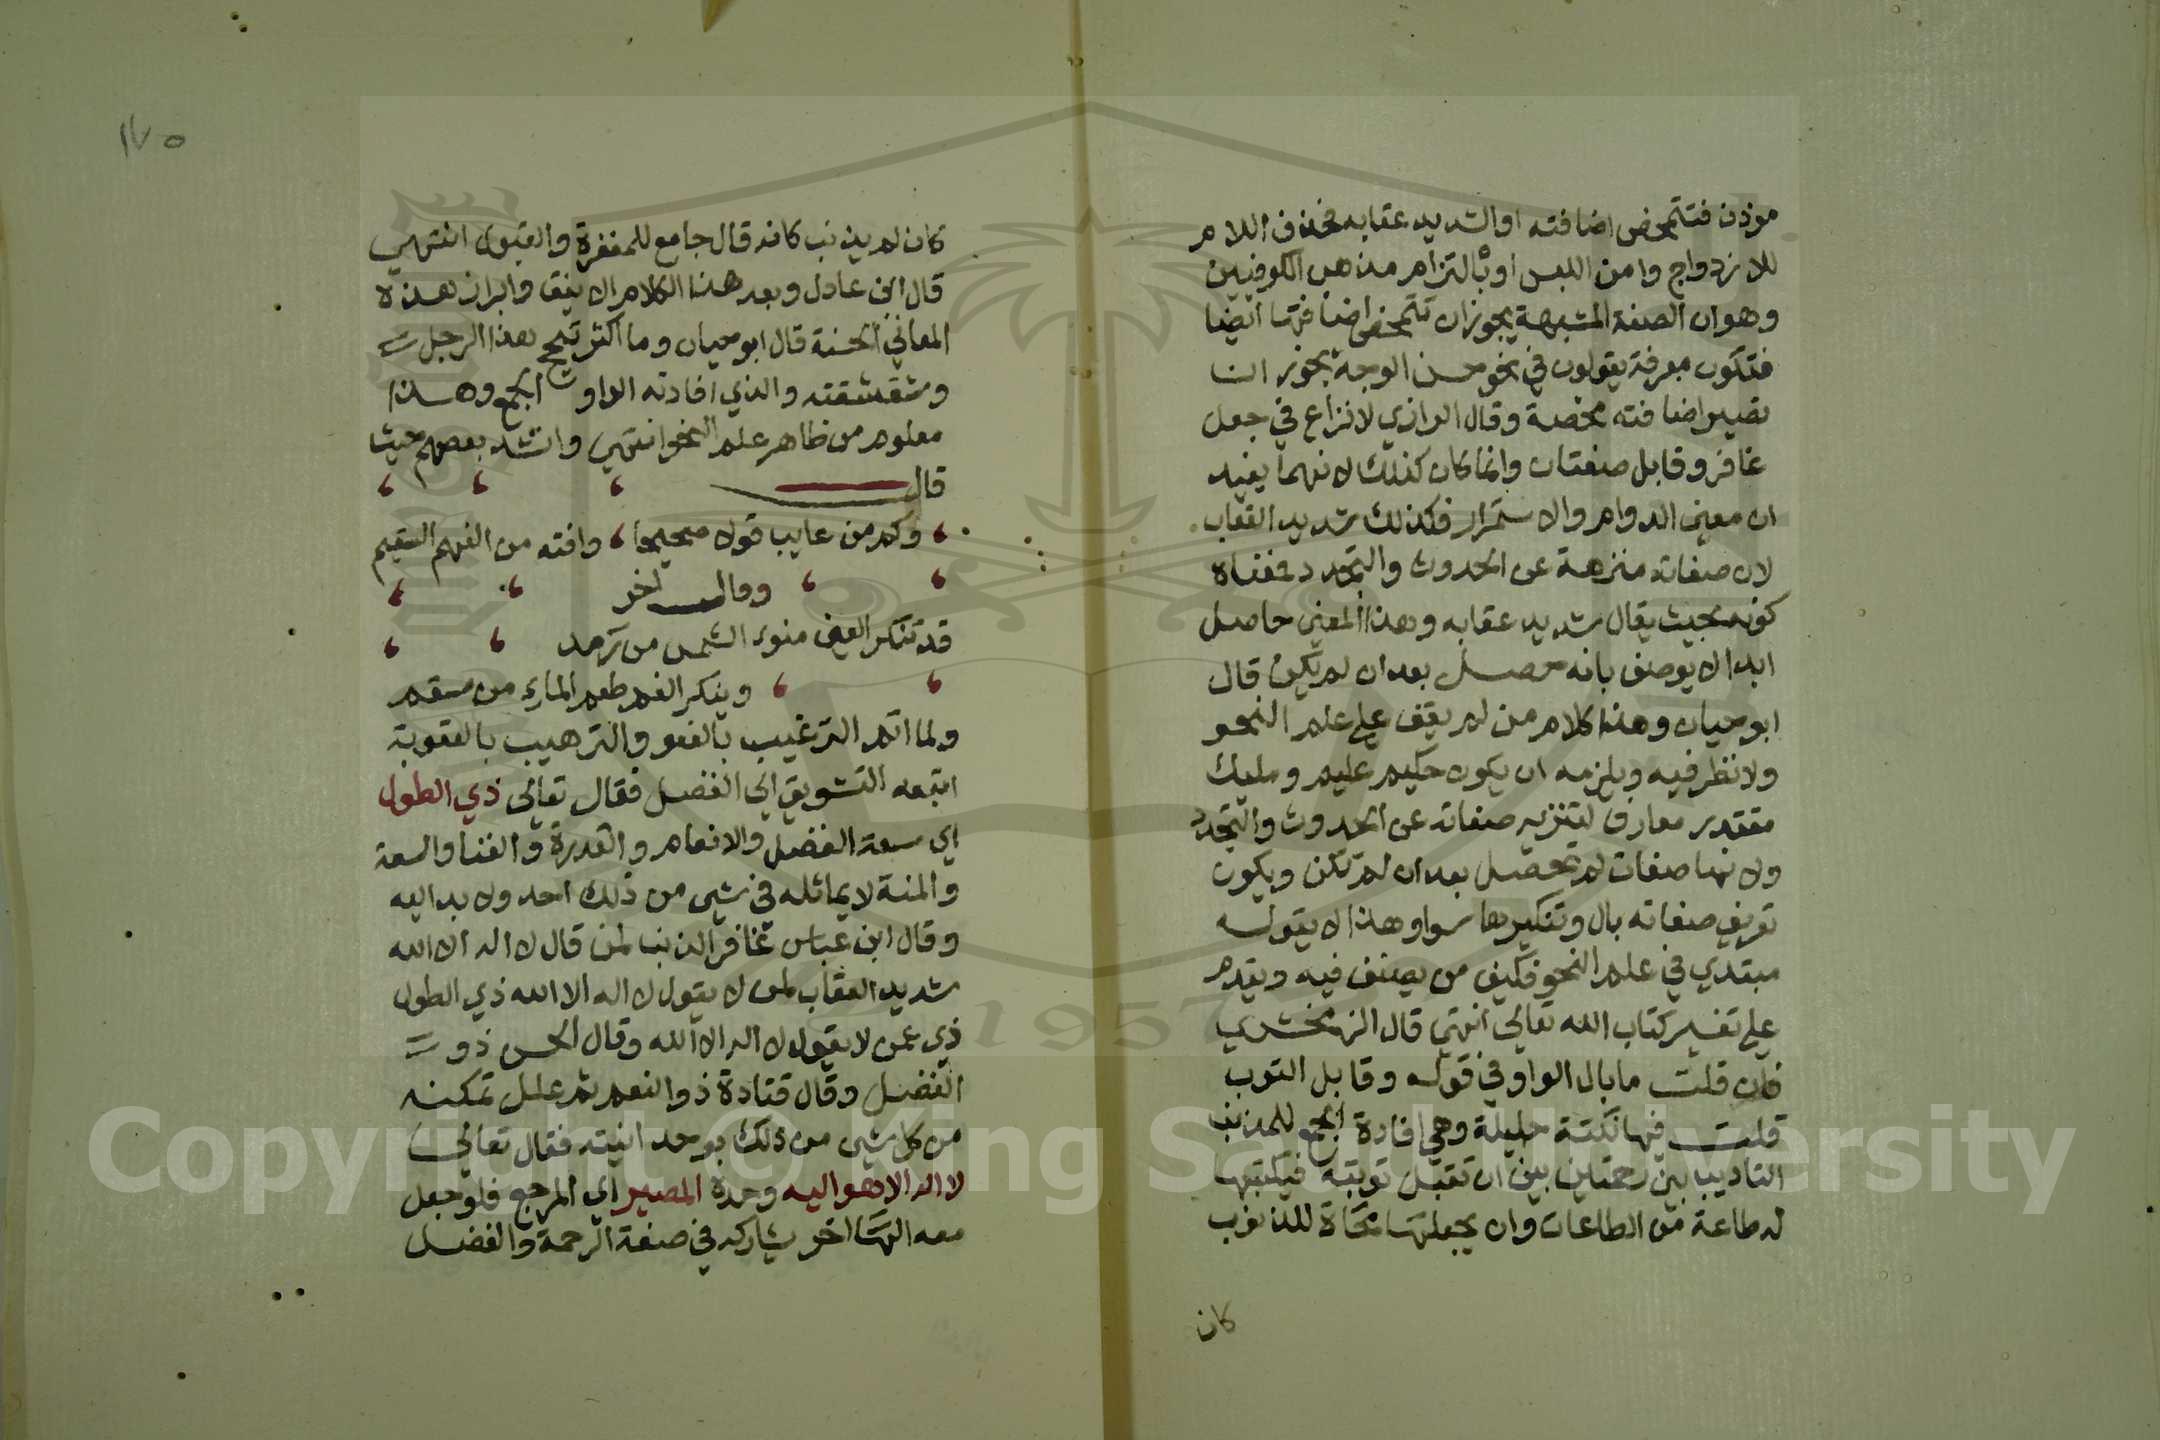 موذن فتتمحض اضافته او الشديد عقابه فحذف اللام
للازدواج وامن اللبس او بالتزام مذهب الكوفيين
وهو ان الصفة المشبهة يجوز ان تتمحض اضافتها ايضا
فتكون معرفة يقولون في نحو حسن الوجه يجوز ان
تصير اضافته محضة وقال الرازي لا نزاع في جعل
غافر وقابل صفتان وانما كان كذلك لانهما يفيد
ان معنى الدوام والاستمرار فكذلك شديد العقاب
لان صفاته منزهة عن الحدوث والتجدد فمعناه
كونه بحيث يقال شديد عقابه وهذا المعنى حاصل
ابدا لا يوصف بانه حصل بعد ان لم يكن قال
ابو حيان وهذا كلام من لم يقف على علم النحو
ولا نظر فيه ويلزمه ان يكون حكيم عليم ومليك
مقتدر معارف لتنزيه صفاته عن الحدوث والتجدد
ولانها صفات لم تحصل بعد ان لم تكن ويكون
تعريف صفاته بال وتنكيرها سوا وهذا لا يقوله
مبتدي في علم النحو فكيف من يصنف فيه ويقدم
على تفسير كتاب الله تعالى انتهى قال الزمخشري
فان قلت ما بال الواو في قوله وقابل التوب
قلت فيها نكتة جليلة وهي افادة الجمع للمذنب
التاديب بين رحمتين بين ان تقبل توبته فيكتبها
له طاعة من الطاعات وان يجعلها محاة للذنوب
كان
١٧٥
كان لم يذنب كانه قال جامع للمغفرة والقبول انتهى
قال ابن عادل وبعد هذا الكلام الانيق وابراز هذه
المعاني الحسنة قال ابو حيان وما اكثر تبجح هذا الرجل
وشقشقته والذي افادته الواو الجمع وهذا
معلوم من ظاهر علم النحو انتهى وانشد بعضهم حيث
قال
وكم من عايب قولا صحيحا وافته من الفهم السقيم
وقال اخر
قد تنكر العين ضوء الشمس من رمد
وينكر الفم طعم الماء من سقم
ولما اتم الترغيب بالعفو والترهيب بالعقوبة
اتبعه التشويق الى الفضل فقال تعالى ذي الطول
اي سعة الفضل والانعام والقدرة والغنا والسعة
والمنة لا يماثله في شي من ذلك احد ولا يدانيه
وقال ابن عباس غافر الذنب لمن قال لا اله الا الله
شديد العقاب لمن لا يقول لا اله الا الله ذي الطول
ذي عمن لا يقول لا اله الا الله وقال الحسن ذو
الفضل وقال قتادة ذو النعم ثم علل تمكنه
من كل شي من ذلك بوحدانيته فقال تعالى
لا اله الا هو اليه وحده المصير اي المرجع فلو جعل
معه الها اخر يشاركه في صفة الرحمة والفضل
1957
Copyright © King Saud University